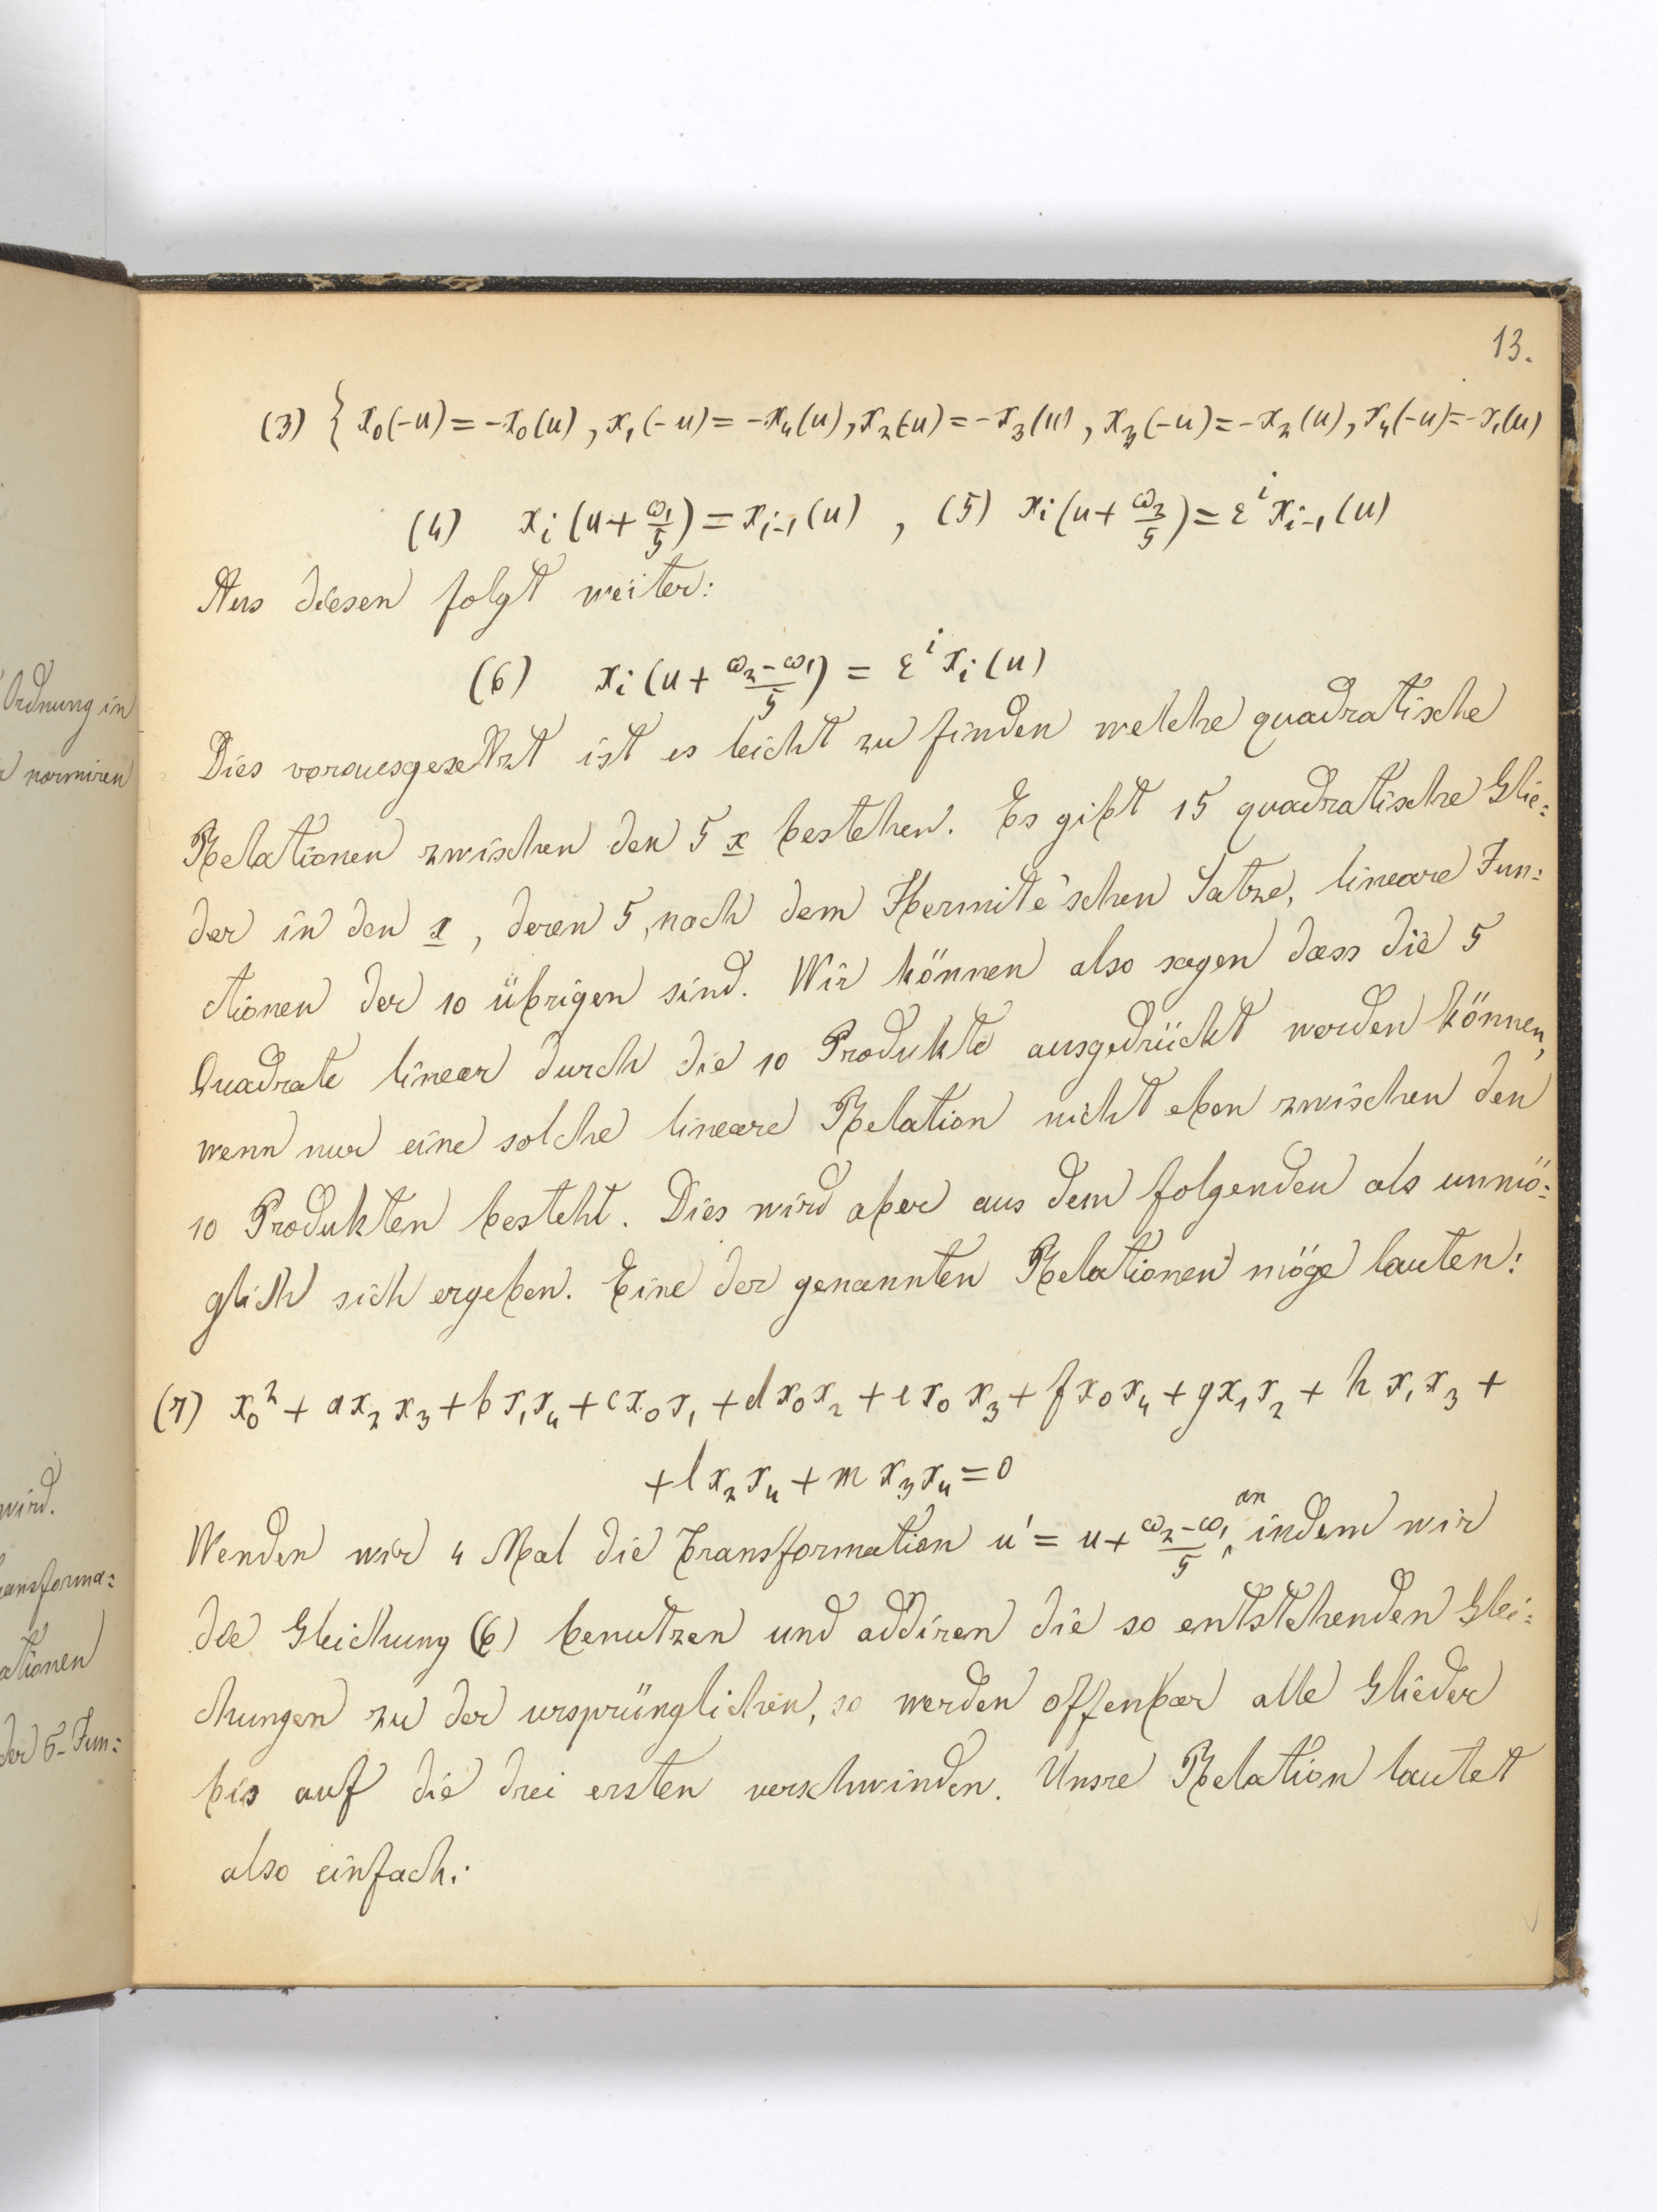 13.
(3) { x₀(-u) = -x₀(u), x₁(-u) = -x₄(u), x₂(-u) = -x₃(u), x₃(-u) = -x₂(u), x₄(-u) = -x₁(u)
(4) xᵢ(u + ω₁/5) = xᵢ₋₁(u) , (5) xᵢ(u + ω₂/5) = εⁱ xᵢ₋₁(u)
Aus diesen folgt weiter:
(6) xᵢ(u + (ω₂-ω₁)/5) = εⁱ xᵢ(u)
Dies vorausgesetzt ist es leicht zu finden welche quadratische
Relationen zwischen den 5 x bestehen. Es gibt 15 quadratische Glie=
der in den x, deren 5, nach dem Hermite'schen Satze, lineare Fun=
ctionen der 10 übrigen sind. Wir können also sagen dass die 5
Quadrate linear durch die 10 Produkte ausgedrückt werden können,
wenn nur eine solche lineare Relation nicht eben zwischen den
10 Produkten besteht. Dies wird aber aus dem folgenden als unmö=
glich sich ergeben. Eine der genannten Relationen möge lauten:
(7) x₀² + ax₂x₃ + bx₁x₄ + cx₀x₁ + dx₀x₂ + ex₀x₃ + fx₀x₄ + gx₁x₂ + hx₁x₃ +
+ lx₂x₄ + mx₃x₄ = 0
Wenden wir 4 Mal die Transformation u' = u + (ω₂-ω₁)/5 an, indem wir
die Gleichung (6) benutzen und addiren die so entstehenden Glei=
chungen zu der ursprünglichen, so werden offenbar alle Glieder
bis auf die drei ersten verschwinden. Unsre Relation lautet
also einfach:
Ordnung in
normiren
wird.
ransforma=
ationen
der σ-Fun=